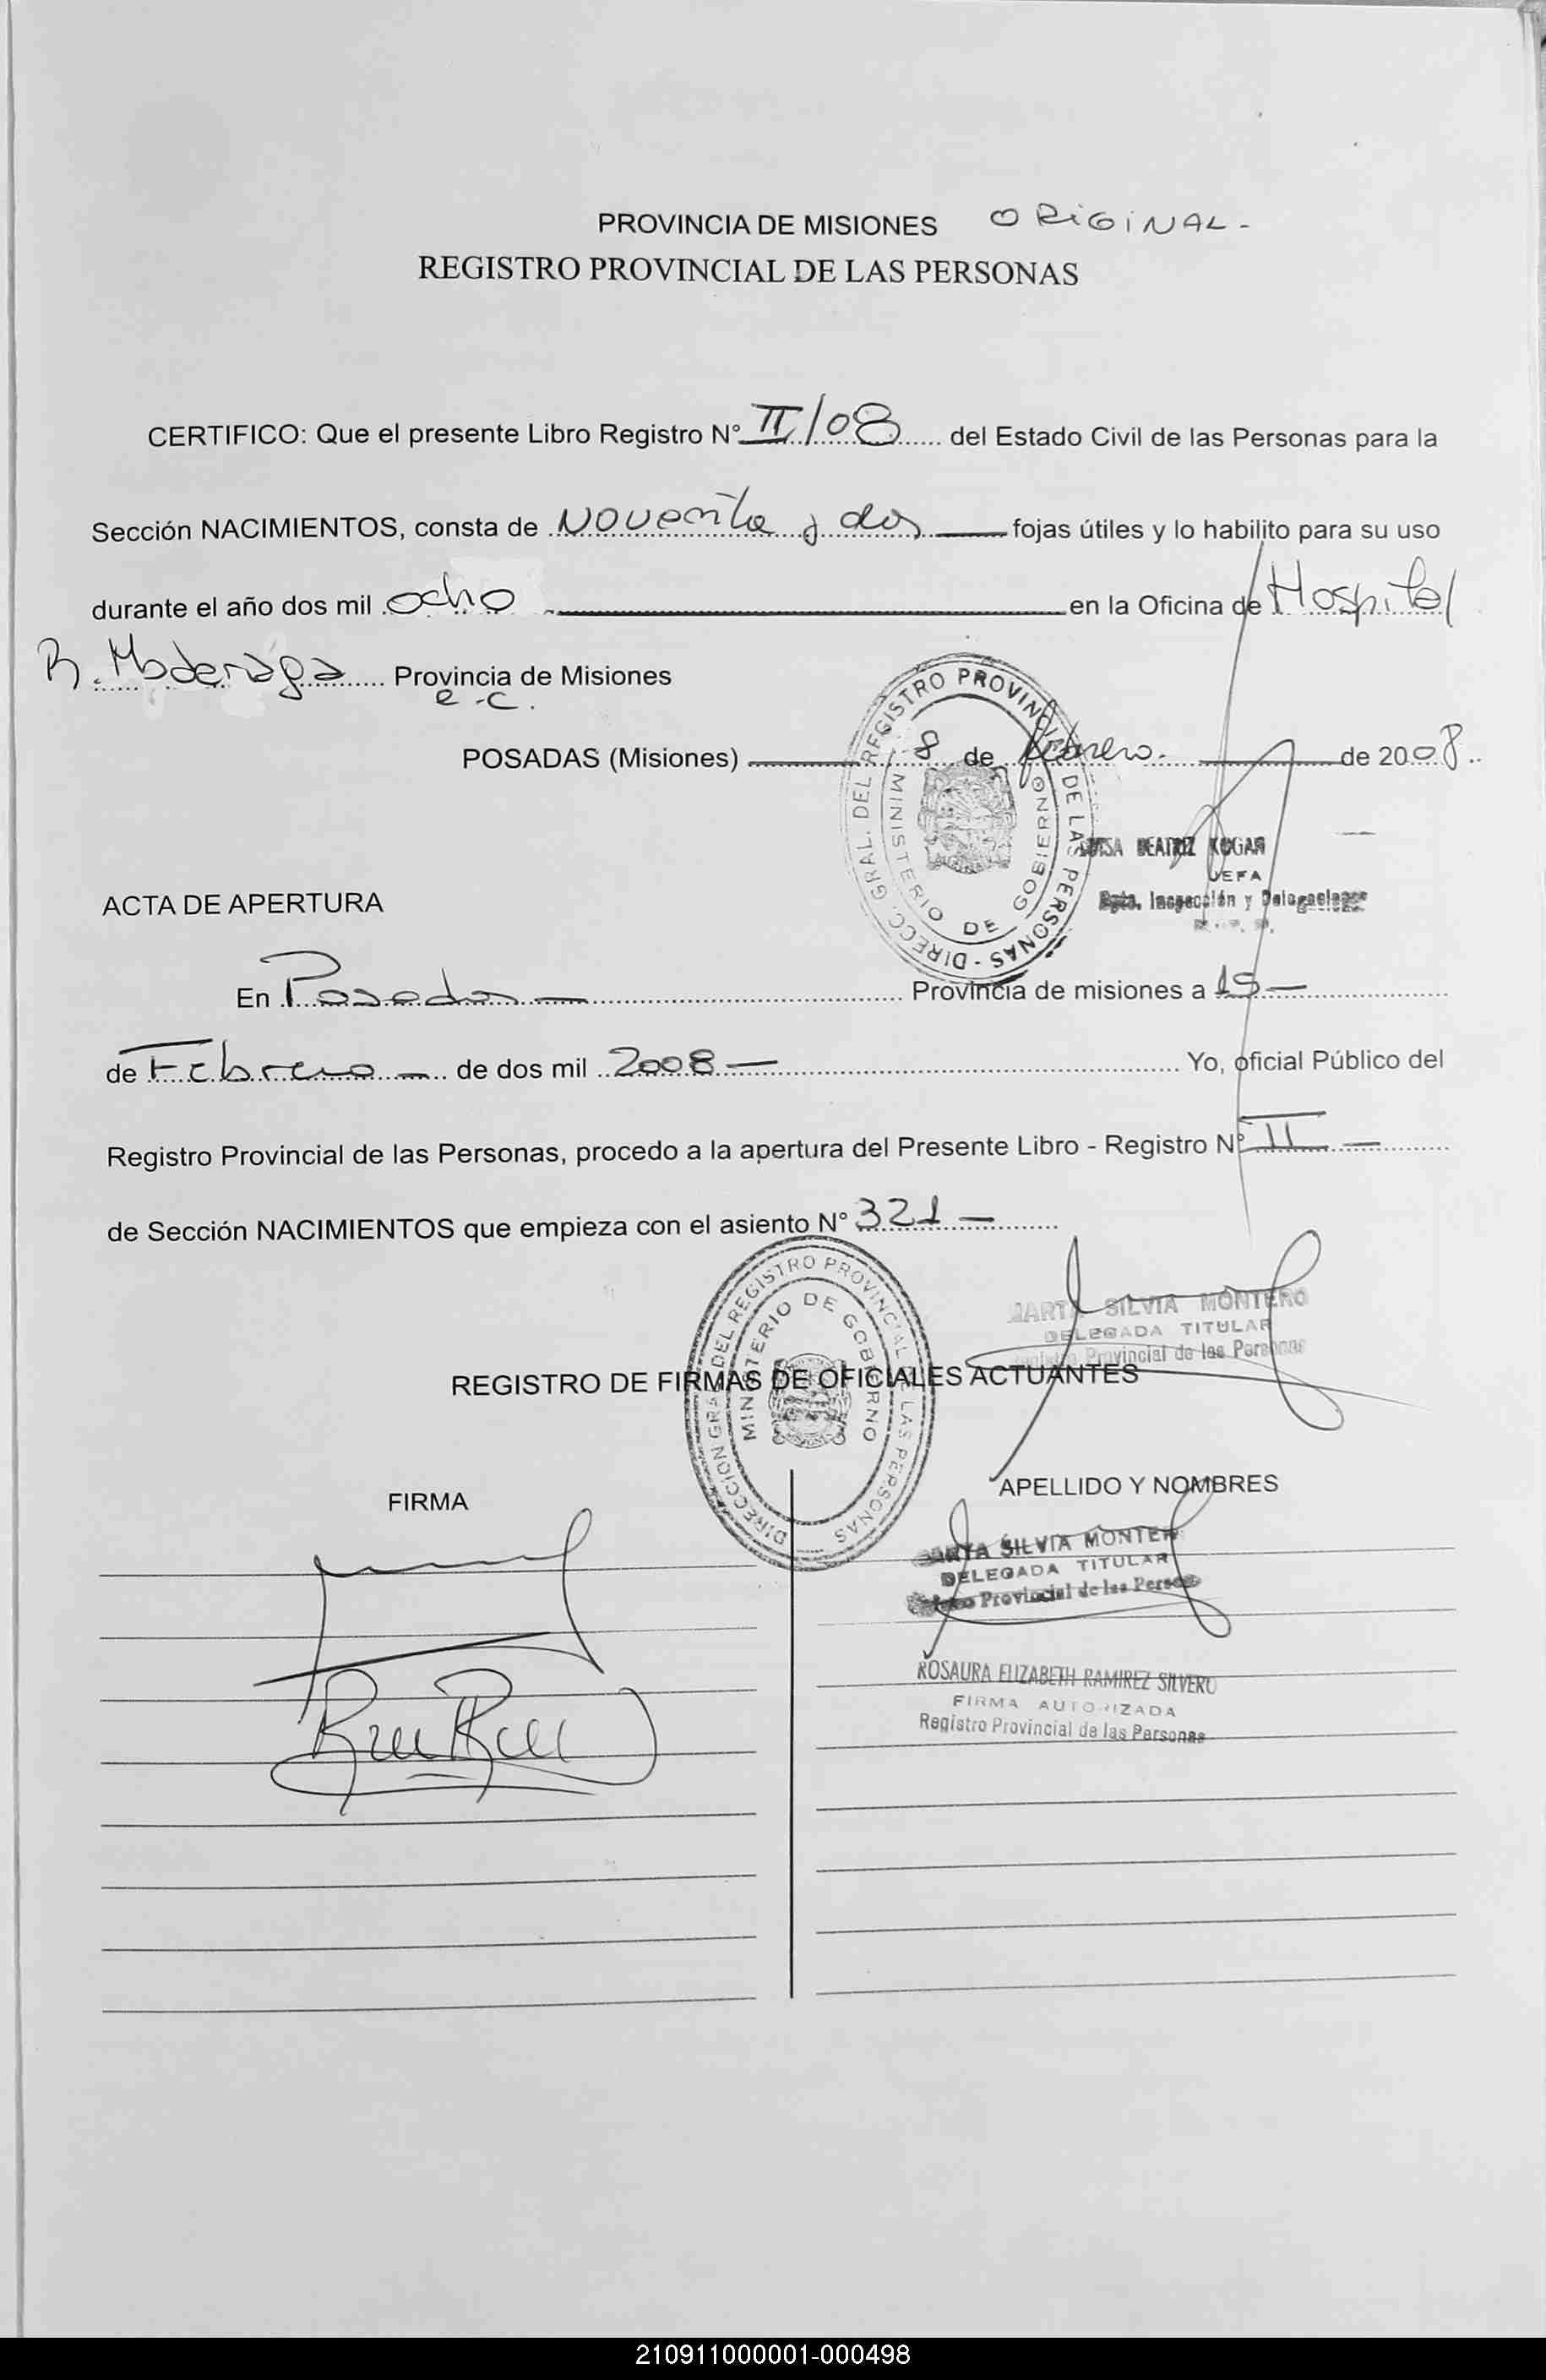 PROVINCIA DE MISIONES ORiGiNAL-
REGISTRO PROVINCIAL DE LAS PERSONAS
CERTIFICO: Que el presente Libro Registro N° II/08 del Estado Civil de las Personas para la
Sección NACIMIENTOS, consta de Noventa y dos fojas útiles y lo habilito para su uso
durante el año dos mil ocho en la Oficina de Hospital
R. Madariaga Provincia de Misiones
e.c.
POSADAS (Misiones) 8 de febrero. de 2008.
DIRECC. GRAL. DEL REGISTRO PROVINCIAL DE LAS PERSONAS -
MINISTERIO DE GOBIERNO
BEATRIZ KOGAN
JEFA
Dpto. Inspección y Delegaciones
ACTA DE APERTURA
En Posadas Provincia de misiones a 15
de Febrero de dos mil 2008 Yo, oficial Público del
Registro Provincial de las Personas, procedo a la apertura del Presente Libro - Registro N° II
de Sección NACIMIENTOS que empieza con el asiento N° 321
DIRECCION GRAL DEL REGISTRO PROVINCIAL DE LAS PERSONAS
MINISTERIO DE GOBIERNO
MARTA SILVIA MONTERO
DELEGADA TITULAR
Registro Provincial de las Personas
REGISTRO DE FIRMAS DE OFICIALES ACTUANTES
FIRMA APELLIDO Y NOMBRES
MARTA SILVIA MONTERO
DELEGADA TITULAR
Registro Provincial de las Personas
ROSAURA ELIZABETH RAMIREZ SILVERO
FIRMA AUTORIZADA
Registro Provincial de las Personas
210911000001-000498